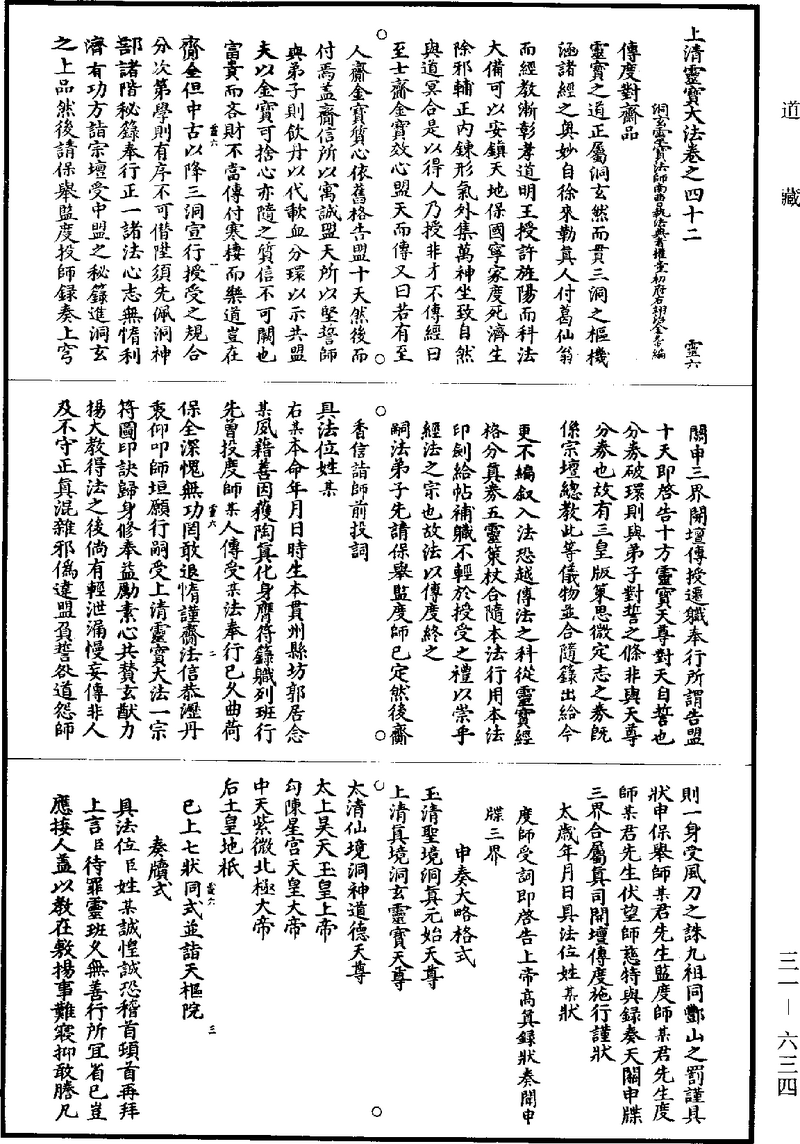 道藏
上清靈寶大法卷之四十二　靈六
洞玄靈寶法師南曹執法典者權童初府右翊治金允中編
傳度對齋品
靈寶之道正屬洞玄然而貫三洞之樞機
涵諸經之奧妙自徐來勒真人付葛仙翁
而經教漸彰孝道明王授許旌陽而科法
大備可以安鎮天地保國寧家度死濟生
除邪輔正內鍊形氣外集萬神坐致自然
與道冥合是以得人乃授非才不傳經曰
至士齋金寶效心盟天而傳又曰若有至
人齋金寶質心依舊格告盟十天然後而
付焉蓋齋信所以寓誠盟天所以堅誓師
與弟子則飲丹以代歃血分環以示共盟
夫以金寶可捨心亦隨之質信不可闕也
富貴而吝財不當傳付寒棲而樂道豈在
齋全但中古以降三洞宣行授受之規合
分次第學則有序不可僣陞須先佩洞神
部諸階秘錄奉行正一諸法心志無惰利
濟有功方詣宗壇受中盟之秘籙進洞玄
之上品然後請保舉監度投師錄奏上穹
關申三界開壇傳授遷職奉行所謂告盟
十天即啓告十方靈寶天尊對天自誓也
分券破環則與弟子對誓之條非與天尊
分券也故有三皇版策思微定志之券既
係宗壇總教此等儀物並合隨籙出給今
更不編叙入法恐越傳法之科從靈寶經
格分真券五靈策杖合隨本法行用本法
印劍給帖補職不輕於授受之禮以崇乎
經法之宗也故法以傳度終之
嗣法弟子先請保舉監度師已定然後齋
香信詣師前投詞
具法位姓某
右某本命年月日時生本貫州縣坊郭居念
某夙藉善因獲陶真化身膺符籙職列班行
先曾投度師某人傳受某法奉行已久曲荷
保全深愧無功罔敢退惰謹齋法信恭瀝丹
衷仰叩師垣願行嗣受上清靈寶大法一宗
符圖印訣歸身修奉益勵素心共贊玄猷力
揚大教得法之後倘有輕泄漏慢妄傳非人
及不守正真混雜邪僞違盟負誓欲道怨師
則一身受風刀之誅九祖同酆山之罰謹具
狀申保舉師某君先生監度師某君先生度
師某君先生伏望師慈特與錄奏天闕申牒
三界合屬真司開壇傳度施行謹狀
太歲年月日具法位姓某狀
度師受詞即啓告上帝高真錄狀奏聞申
牒三界
申奏大略格式
玉清聖境洞真元始天尊
上清真境洞玄靈寶天尊
太清仙境洞神道德天尊
太上昊天玉皇上帝
勾陳星宮天皇大帝
中天紫微北極大帝
后土皇地祇
已上七狀同式並詣天樞院
奏牘式
具法位臣姓某誠惶誠恐稽首頓首再拜
上言臣待罪靈班久無善行所宜省已豈
應接人蓋以教在敷揚事難寢抑敢謄凡
三一—六三四